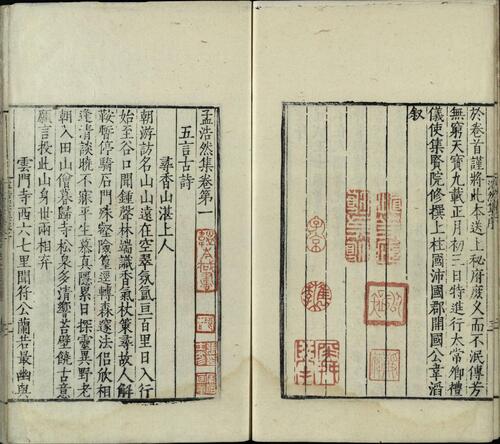 於卷首謹將此本送上秘府庶久而不泯傳芳
無窮天寶九載正月初三日特進行太常卿禮
儀使集賢院修撰上柱國沛國郡開國公韋滔
叙
孟浩然集卷第一
五言古詩
尋香山湛上人
朝游訪名山山遠在空翠氛氳亘百里日入行
始至谷口聞鍾聲林端識香氣杖策尋故人解
鞍暫停騎石門殊壑險篁逕轉森邃法侶欣相
逢清談曉不寐平生慕真隱累日探靈異野老
朝入田山僧暮歸寺松泉多清響苔壁饒古意
願言投此山身世兩相弃
雲門寺西六七里聞符公蘭若最幽與